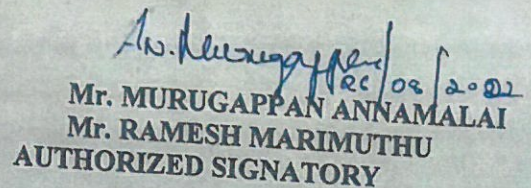 An. Murugappan
/08/2022
Mr. MURUGAPPAN ANNAMALAI
Mr. RAMESH MARIMUTHU
AUTHORIZED SIGNATORY